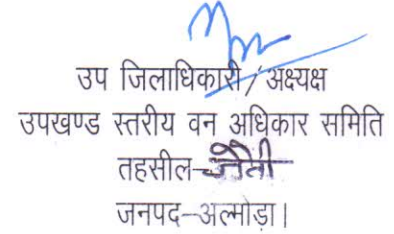 उप जिलाधिकारी/अक्ष्यक्ष
उपखण्ड स्तरीय वन अधिकार समिति
तहसील-जैती
जनपद-अल्मोड़ा।